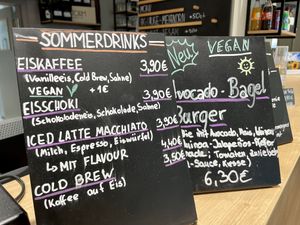 SOMMERDRINKS
EISKAFFEE 3,90€
(Vanilleeis, Cold Brew, Sahne)
VEGAN +1€
EISSCHOKI 3,90€
(Schokoladeneis, Schokolade, Sahne)
ICED LATTE MACCHIATO 3,90€
(Milch, Espresso, Eiswürfel)
↳ MIT FLAVOUR 4,40€
COLD BREW 3,50€
(Kaffee auf Eis)
Neu
VEGAN
Avocado - Bagel
Burger
mit Avocado, Mais,
Jalapeños
Tomaten, Zwiebel
-Sauce, Kresse)
6,30€